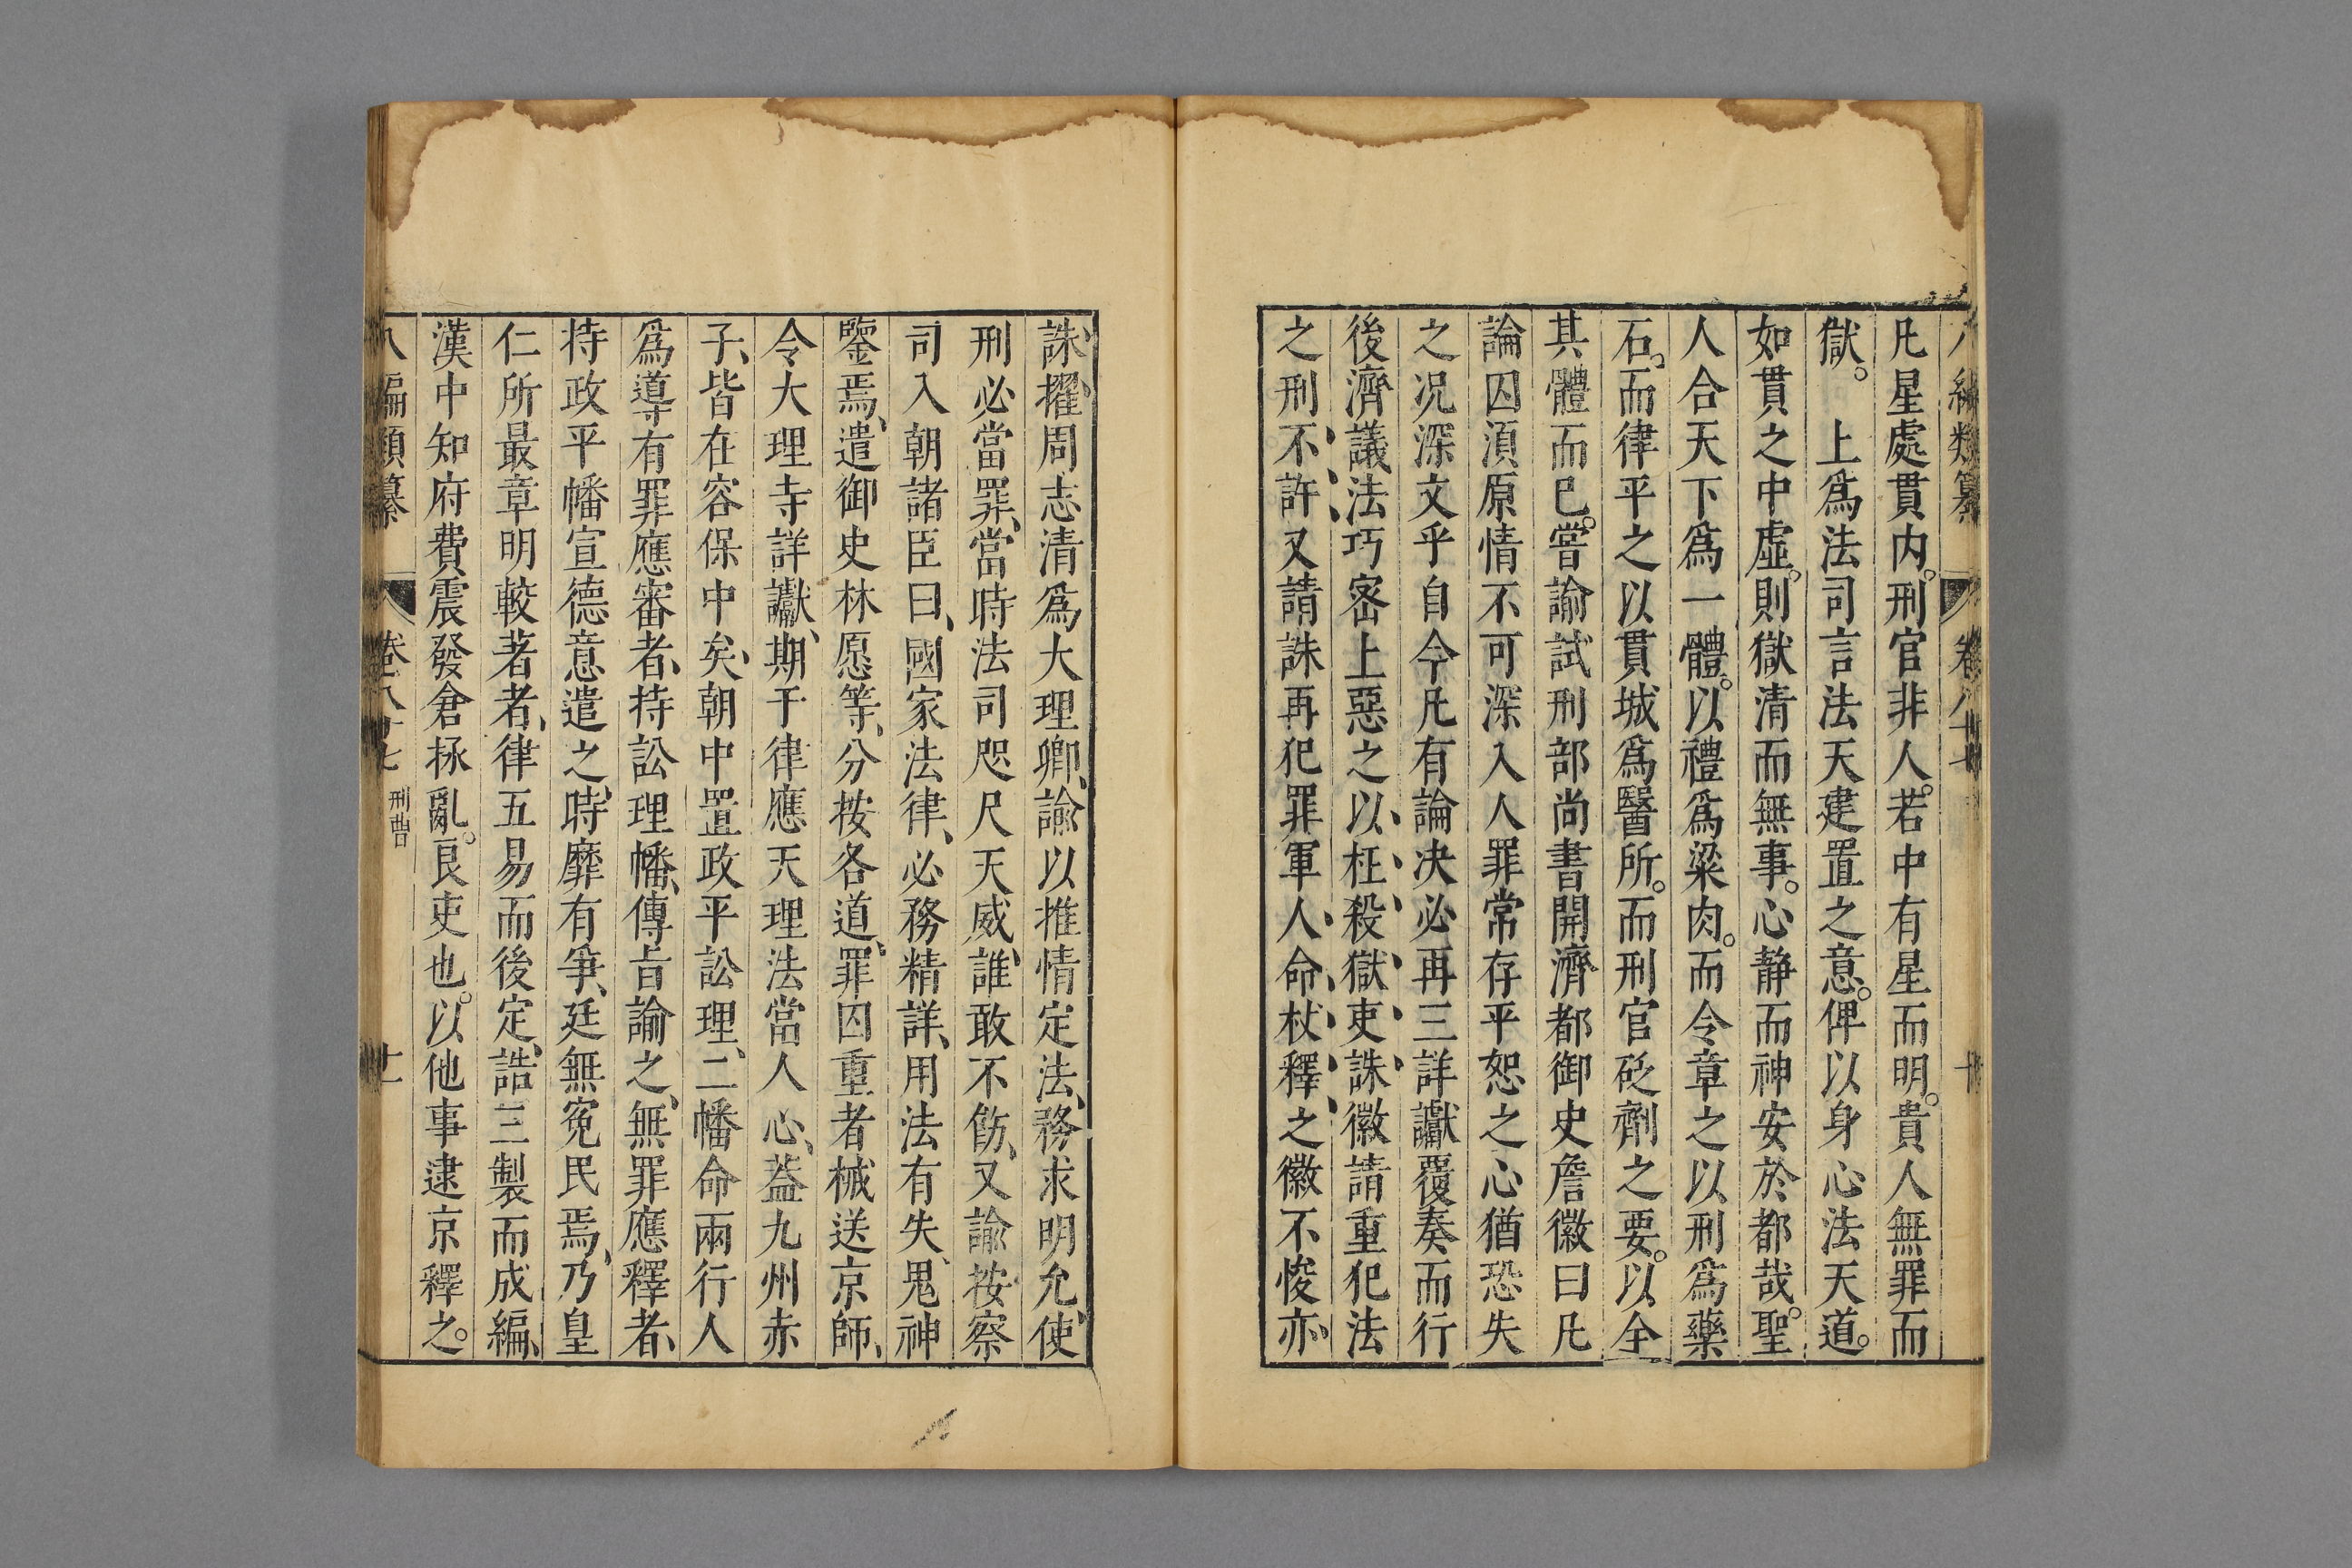 編類纂 卷八十七 十
凡星處貫内。刑官非人。若中有星而明。貴人無罪而
獄。 上爲法司言法天建置之意。俾以身心法天道。
如貫之中虛。則獄清而無事。心静而神安於都哉。聖
人合天下爲一體。以禮爲粱肉。而令章之以刑爲藥
石。而律平之以貫城爲醫所。而刑官砭劑之要。以全
其體而已。嘗諭試刑部尚書開濟都御史詹徽曰凡
論囚湏原情不可深入人罪常存平恕之心猶恐失
之况深文乎自今凡有論决必再三詳讞覆奏而行
後濟議法巧宻上惡之以、枉、殺、獄、吏、誅、徽請重犯法
之刑不、許、又請誅再犯罪軍人、命、杖、釋、之、徽不悛亦、
誅、擢、周志清爲大理卿、諭以推情定法、務求明允、使
刑必當罪、當時法司咫尺天威、誰敢不飭、又諭按察
司入朝諸臣曰、國家法律、必務精詳、用法有失、鬼神
鑒焉、遣御史林愿等、分按各道、罪囚重者械送京師、
令大理寺詳讞、期于律應天理法當人心、葢九州赤
子、皆在容保中矣、朝中置政平訟理、二幡命兩行人
爲導有罪應審者、持訟理幡、傳旨諭之、無罪應釋者、
持政平幡宣德意遣之、時靡有爭、廷無寃民焉、乃皇
仁所最章明較著者、律五易而後定、誥三製而成編、
漢中知府費震發倉拯亂。良吏也。以他事逮京釋之。
八編類纂 卷八十七 刑曹 十一